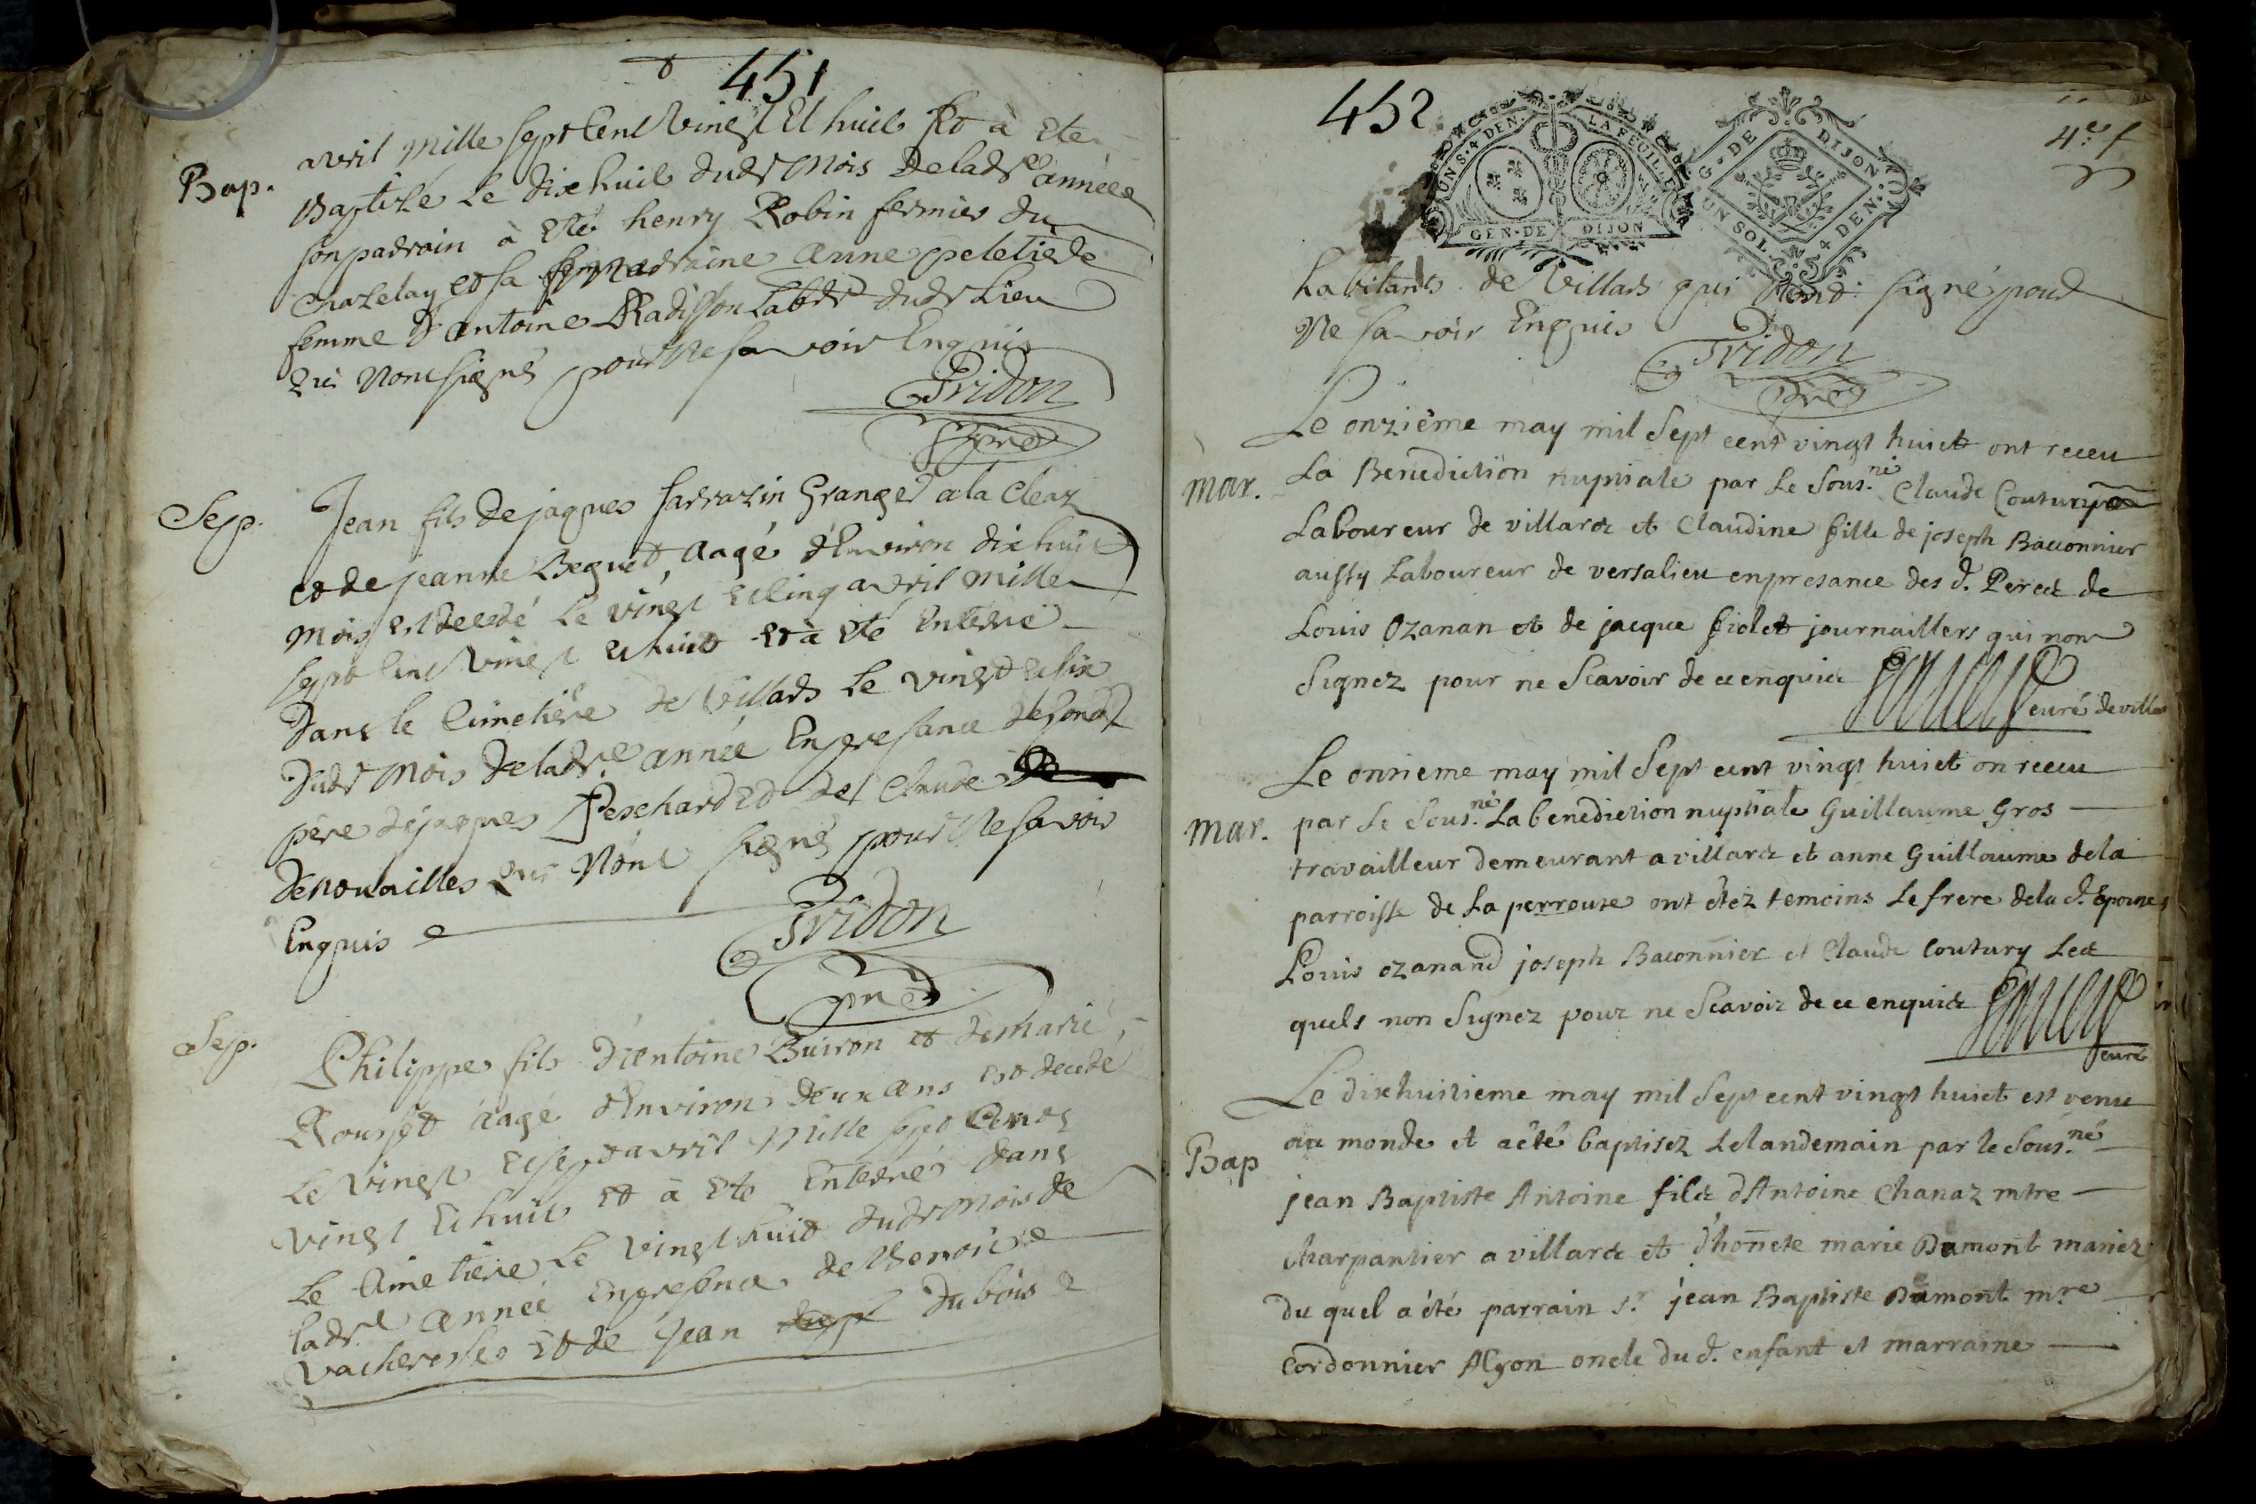 451
Bap.
avril mille sept cent vingt et huit et à ete
Baptisé le dixhuit dudt mois de ladte année
son padrain à eté henry Robin fermier du
Chazelay et sa madraine anne peletie de
femme d'antoine Radisson Labr dudt Lieu
qui n'ont signés pour ne savoir Enquis
Tridon
Sep.
Jean fils de jaques sarrazin Granger a la Cleaz
et de jeanne Beguet, aagé d'Environ dix huit
mois est decedé le vingt et cinq avril mille
sept cent vingt et huit et à eté Enterré
dans le cimetière de Villars le vingt et six
dudt mois de ladte année En presance de sondt
père de jaques Peschard et de Claude
denouailles qui n'ont signés pour ne savoir
Enquis
Tridon
Sep.
Philippe fils d'antoine Buiron et de marie
Rousset aagé d'Environ deux ans est decedé
Le vingt et sept avril mille sept cents
vingt et huit et à ete Enterré dans
Le Cimetière Le vingt huit dudt mois de
ladte année en presence de Benoist
vacheresse et de jean dubois
452
UN S. 4 DEN. LA FEUILLE
GEN. DE DIJON
G. DE DIJON
UN SOL 4 DEN.
4e f
habitants de Villars qui n'ont signé pour
Ne savoir Enquis
Tridon
Le onziême may mil Sept cent vingt huict ont receu
mar.
La Benediction nuptiale par Le Sous.né Claude Coutury
Laboureur de villars et Claudine fille de joseph Baconnier
aussy Laboureur de versalieu en presance des d. Peres de
Louis Ozanan et de jacque fiolet journaillers qui non
Signez pour ne Scavoir de ce enquis
curé de villars
Le onzieme may mil Sept cent vingt huict on receu
mar.
par Le Sous.né La benediction nuptiale Guillaume Gros
travailleur demeurant a villars et anne Guillaume dela
parroisse de La perrouse ont êtez temoins Le frere dela d. Epouse
Louis ozanand joseph Baconnier et Claude Coutury Les
quels non Signez pour ne Scavoir de ce enquis
curé
Le dixhuitieme may mil Sept cent vingt huict est venu
Bap
au monde et a êté baptisez Lelandemain par le Sous.né
jean Baptiste Antoine fils d'Antoine Chanaz mtre
Charpantier a villars et d'honete marie Dumont mariez
du quel a été parrain sr jean Baptiste Dumont mre
Cordonnier A Lyon oncle du d. enfant et marraine